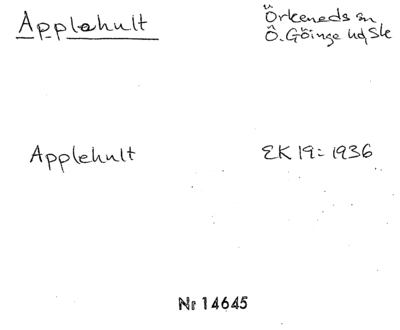 Applehult
Örkeneds sn
Ö. Göinge hd, Sk
Applehult
EK 19: 1936
Nr 14645